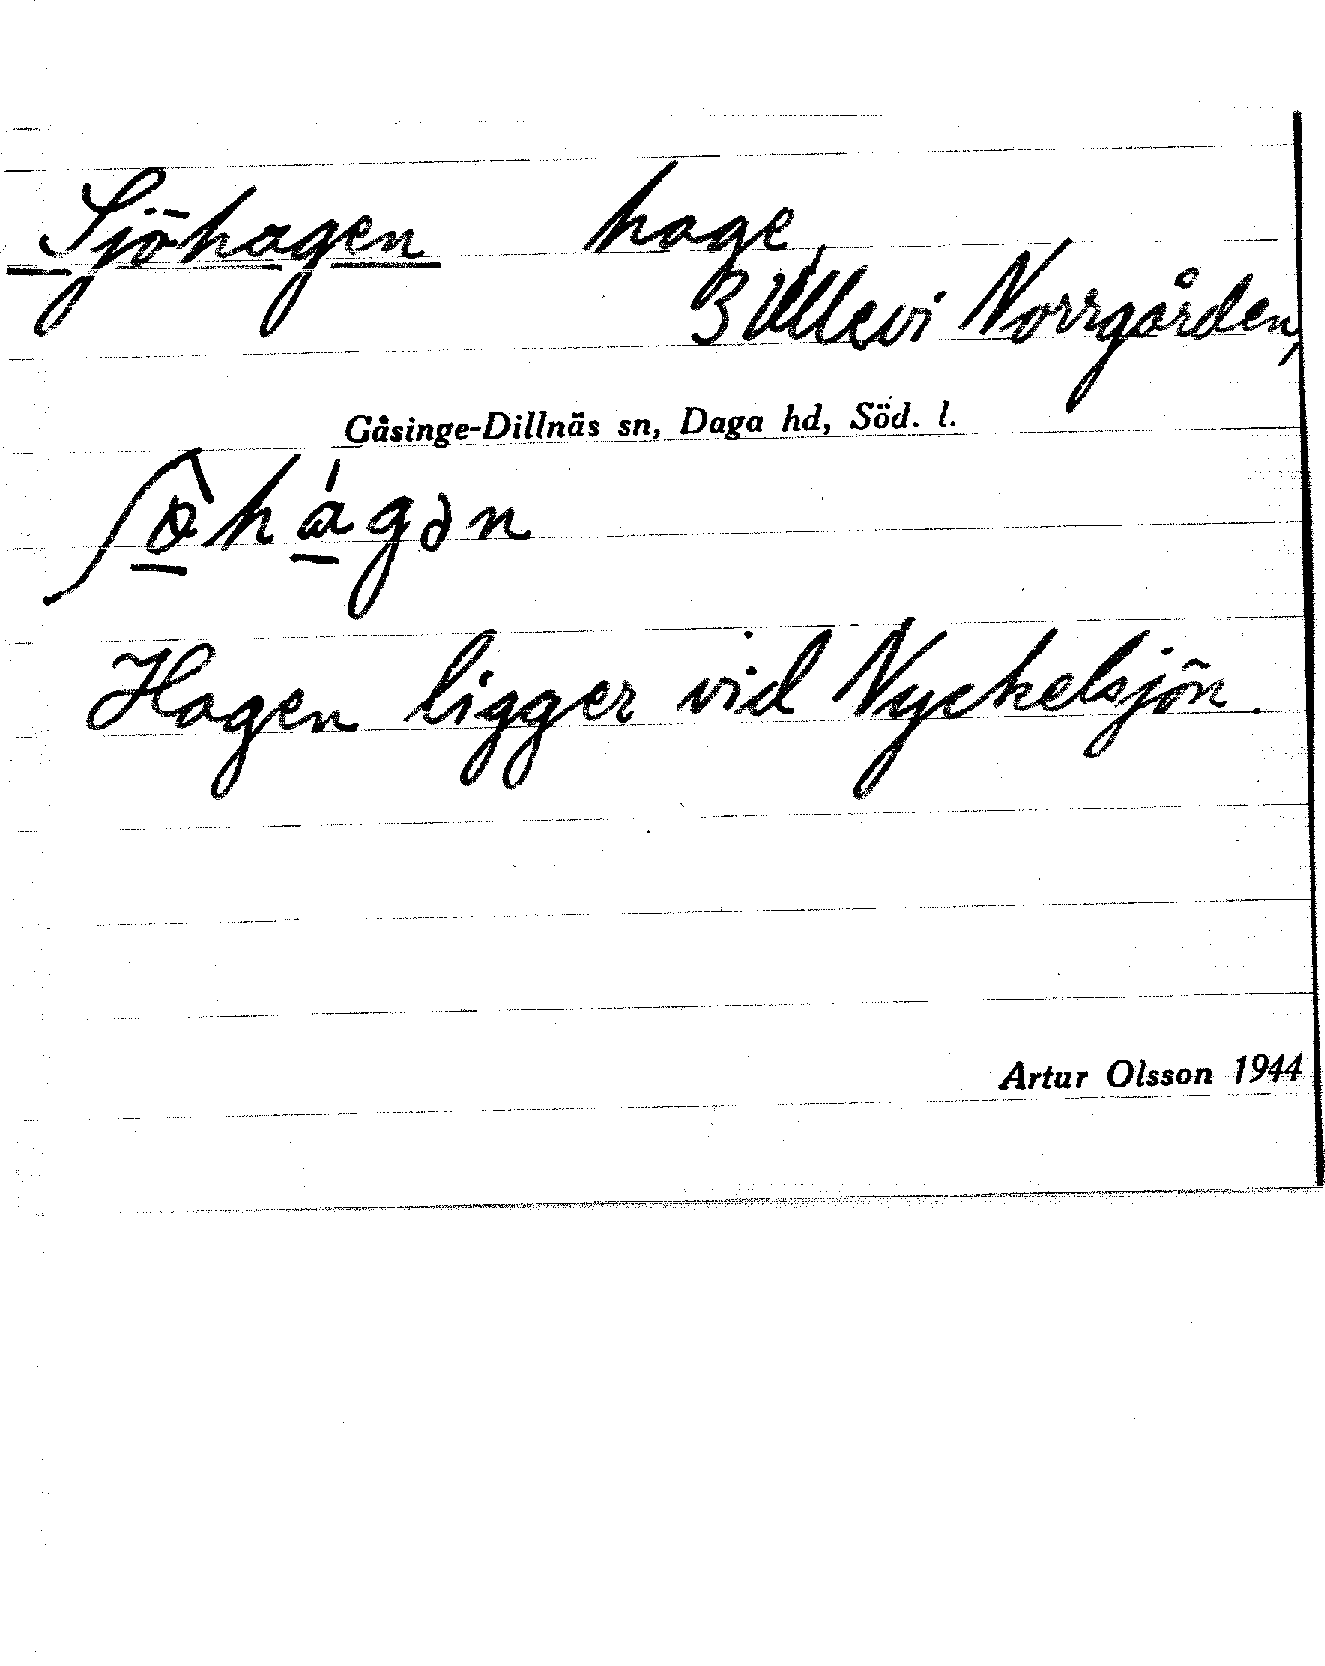 Sjöhagen hage,
3 Ullevi Norrgården,
Gåsinge-Dillnäs sn, Daga hd, Söd. l.
ʃö̂hágən
Hagen ligger vid Nyckelsjön.
Artur Olsson 1944